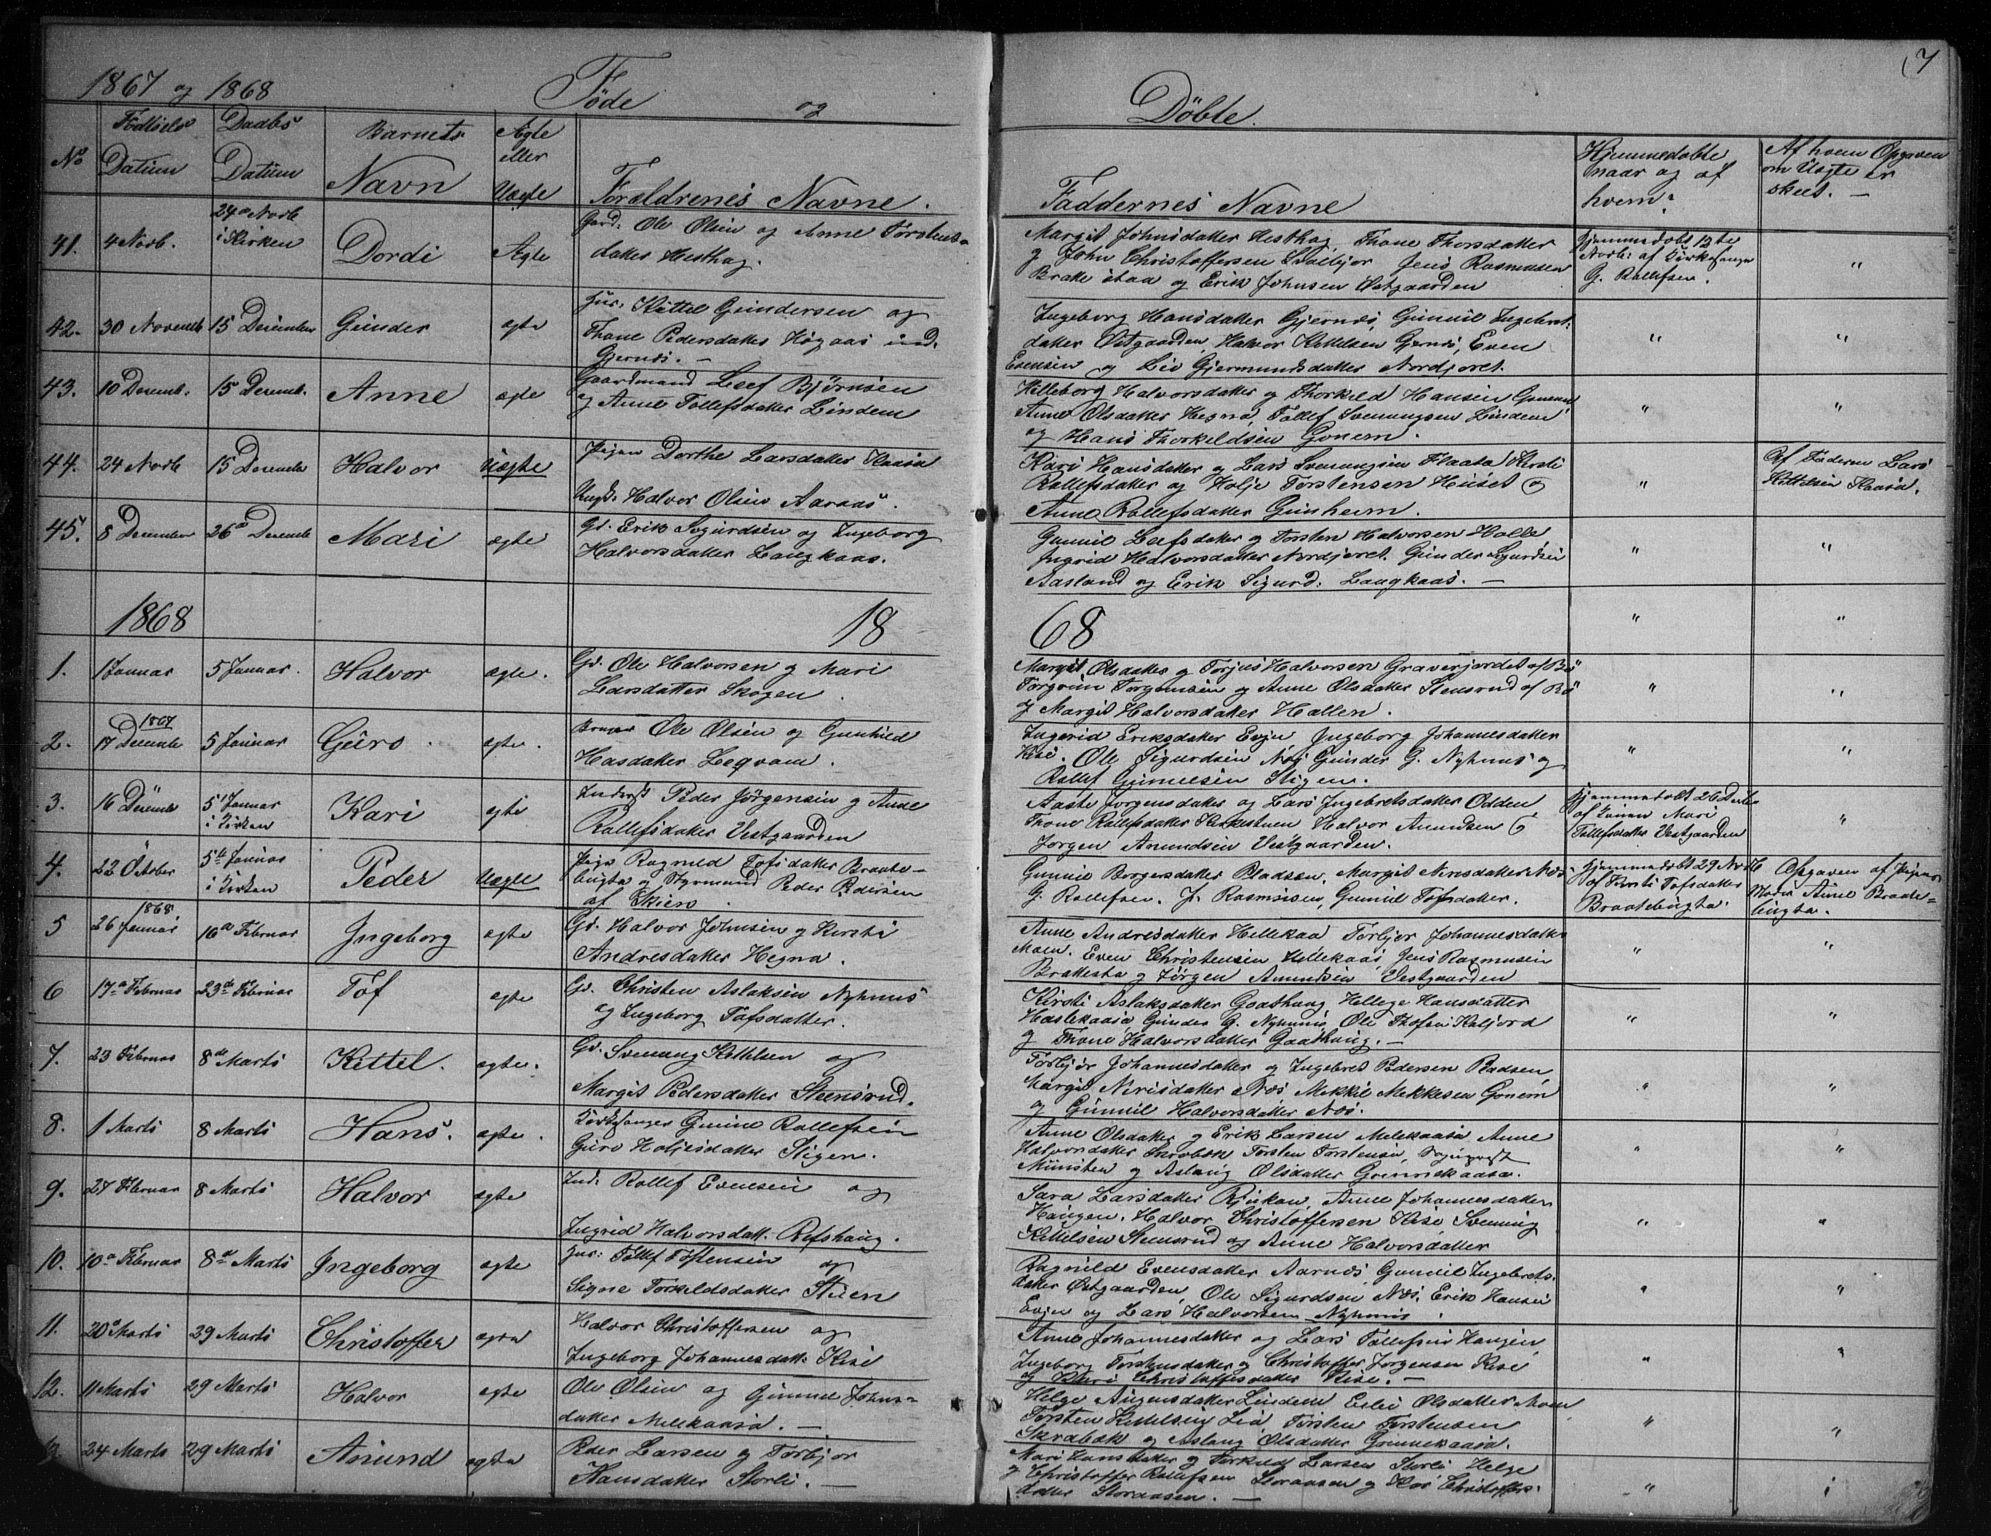 1867 og 1868 Føde og Døbte. 7
No Fødsels Datum Daabs Datum Barnets Navn Ægte eller Uægte Forældrenes Navne. Faddernes Navne Hjemmedøbte naar og af hvem? Af hvem Opgaven om Uægte er skeet. —
41. 4 Novb. 24de Novb i Kirken Dordi Ægte Gard: Ole Olsen og Anne Torstens-
datter Hesthag.
Margit Johnsdatter Hesthag, Thone Thorsdatter
og John Christoffersen Svalbjør Jens Rasmussen
Brakestaa og Erik Johnsen Østgaarden
Hjemmedøbt 13te
Novb: af Kirkesanger
G. Rollefsen. "
42. 30 Novemb 15 December Gunder ægte Hus: Kittel Gundersen og
Thone Pedersdatter Høgaas ind.
Gjernes. —
Ingeborg Hansdatter Gjernes, Gunnil Ingebret-
datter Østgaarden, Halvor Kittelsen Gjernes, Even
Evensen og Liv Gjermundsdatter Nordjoret. " "
43. 10 Decemb. 15 Decemb. Anne ægte Gaardmand Leef Bjørnsen
og Anne Tollefsdatter Lindem
Helleborg Halvorsdatter og Thorkild Hansen Gonem
Anne Olsdatter Hegna, Tollef Svenungsen Lindem
og Hans Thorkildsen Gonem. " "
44. 24 Novb 15 Decemb Halvor Uægte Pigen Dorthe Larsdatter Kaasa
Ungk: Halvor Olsen Aaraas.
Kari Hansdatter og Lars Svenungsen Flaata Kirsti
Rollefsdatter og Holje Torstensen Huset og
Anne Rollefsdatter Gunheim. " Af Faderen Lars
Kittilsen Kaasa.
45. 8 December 26de Decemb Mari ægte Gd. Erik Sigurdsen og Ingeborg
Halvorsdatter Langkaas.
Gunnil Leefsdatter og Torsten Halvorsen Holle
Ingrid Halvorsdatter Nordjoret. Gunder Sigurdsen
Aasland og Erik Sigurd: Langkaas. — " "
1868 1868 " "
1. 1 Januar 5 Januar. Halvor ægte. Gd. Ole Halvorsen og Mari
Larsdatter Skogen.
Margit Olsdatter og Torjus Halvorsen Graverjordet af Bø
Torgrim Torgrimsen og Anne Olsdatter Stensrud af Bø
og Margit Halvorsdatter Hallen. " "
2. 1867 17 Decemb 5 Januar Guro ægte. Ole Olsen og Gunhild
Hasdatter Legvam.
Ingerid Eriksdatter Evjen Ingeborg Johannesdatter
Kise. Ole Sigurdsen Næs Gunder G. Nyhuus og
Rollef Gunnelsen Stigen. " "
3. 16 Decemb 5te Januar i Kirken Kari ægte Inderst Peder Jørgensen og Anne
Rollefsdatter Vestgaarden
Aaste Jorgensdatter og Lars Ingebretsdatter Odden
Thone Rollefsdatter Kirkestuen Halvor Amundsen og
Jorgen Amundsen Vestgaarden.
Hjemmedøbt 26 Decbr
af Konen Mari
Tollefsdatter Vestgaarden "
4. 22 October 5te Januar i Kirken Peder Uægte Pigen Ragnild Tofsdatter Braate-
bugta og Styrmand Peder Pedersen
af Skien.
Gunnil Borgersdatter Bradsen, Margit Nirisdatter Næs
G. Rollefsen. J. Rasmusen, Gunnil Tofsdatter.
Hjemmedøbt 29 Novb
af Kirsti Tofsdatter
Braatebugta.
Opgaven af Pigens
Moder Anne Braate-
bugta.
5 1868 26 Januar 16de Februar Ingeborg ægte Gd. Halvor Johnsen og Kirsti
Andresdatter Hegna.
Anne Andresdatter Hellekaas Torbjør Johannesdatter
Moen. Even Christensen Hellekaas, Jens Rasmusen
Brakesta og Jørgen Amundsen Vestgaarden " "
6 17de Februar 23de Februar Tof ægte Gd. Christen Aslaksen Nyhuus
og Ingeborg Tofsdatter.
Kirsti Aslaksdatter Goathaug Hellege Hansdatter
Haslekaasa Gunder G. Nyhuus Ole Thofsen Kaljord
og Thone Halvorsdatter Gaathaug. — " "
7. 23 Februar 8de Marts Kittel. ægte. Gd. Svenung Kittelsen og
Margit Pedersdatter Steensrud.
Torbjør Johannesdatter og Ingebret Pedersen Badsen
Margit Nirisdatter Næs Mekkil Mekkelsen Gonem
og Gunnil Halvorsdatter Næs. " "
8. 1 Marts 8 Marts Hans. ægte. Kirkesanger Gunne Rollefsen
Guro Holjesdatter Stigen.
Anne Olsdatter og Erik Larsen Melekaasa Anne
Halvorsdatter Skrabæk Torsten Torstensen, Sogneprest
Münster og Aslaug Olsdatter Grimmekaasa. " "
9. 27 Februar 8 Marts Halvor ægte Ind: Rollef Evensen og
Ingrid Halvorsdatt. Refshaug.
Sara Larsdatter Rjukan, Anne Johannesdatter
Haugen. Halvor Christoffersen Kise Svenning
Kittilsen Stensrud og Anne Halvorsdatter " "
10. 10de Februar 8de Marts Ingeborg ægte Hus: Tollef Tostensen og
Signe Torkildsdatter Stuen
Ragnild Evensdatter Aarnes, Gunnil Ingebrets-
datter Østgaarden, Ole Sigurdsen Næs, Erik Hansen
Evjen og Lars Halvorsen Nyhuus. " "
11. 20de Marts 29 Marts Christoffer ægte Halvor Christoffersen og
Ingeborg Johannesdatt. Kise
Anne Johannesdatter og Lars Tollefsen Haugen,
Ingeborg Torstensdatter og Christoffer Jørgensen Kise
og Christoffersdatter Kise. — " "
12. 11 Marts 29 Marts Halvor ægte Ole Olsen og Gunnel Johns-
datter Melekaasa. —
Helge Lindem Olsdatter Moen
Torsten Kittelsen Lia Torsten Torstensen
Skrabæk og Aslaug Olsdatter Grimmekaasa. " "
13. 24 Marts 29 Marts Amund ægte Peder Larsen og Torbjør
Hansdatter Storli. —
Mari Hansdatter og Torkild Larsen Storli Helge
og Christoffer Rollefsen Storaasen og Christoffers-
datter Storaasen. — "